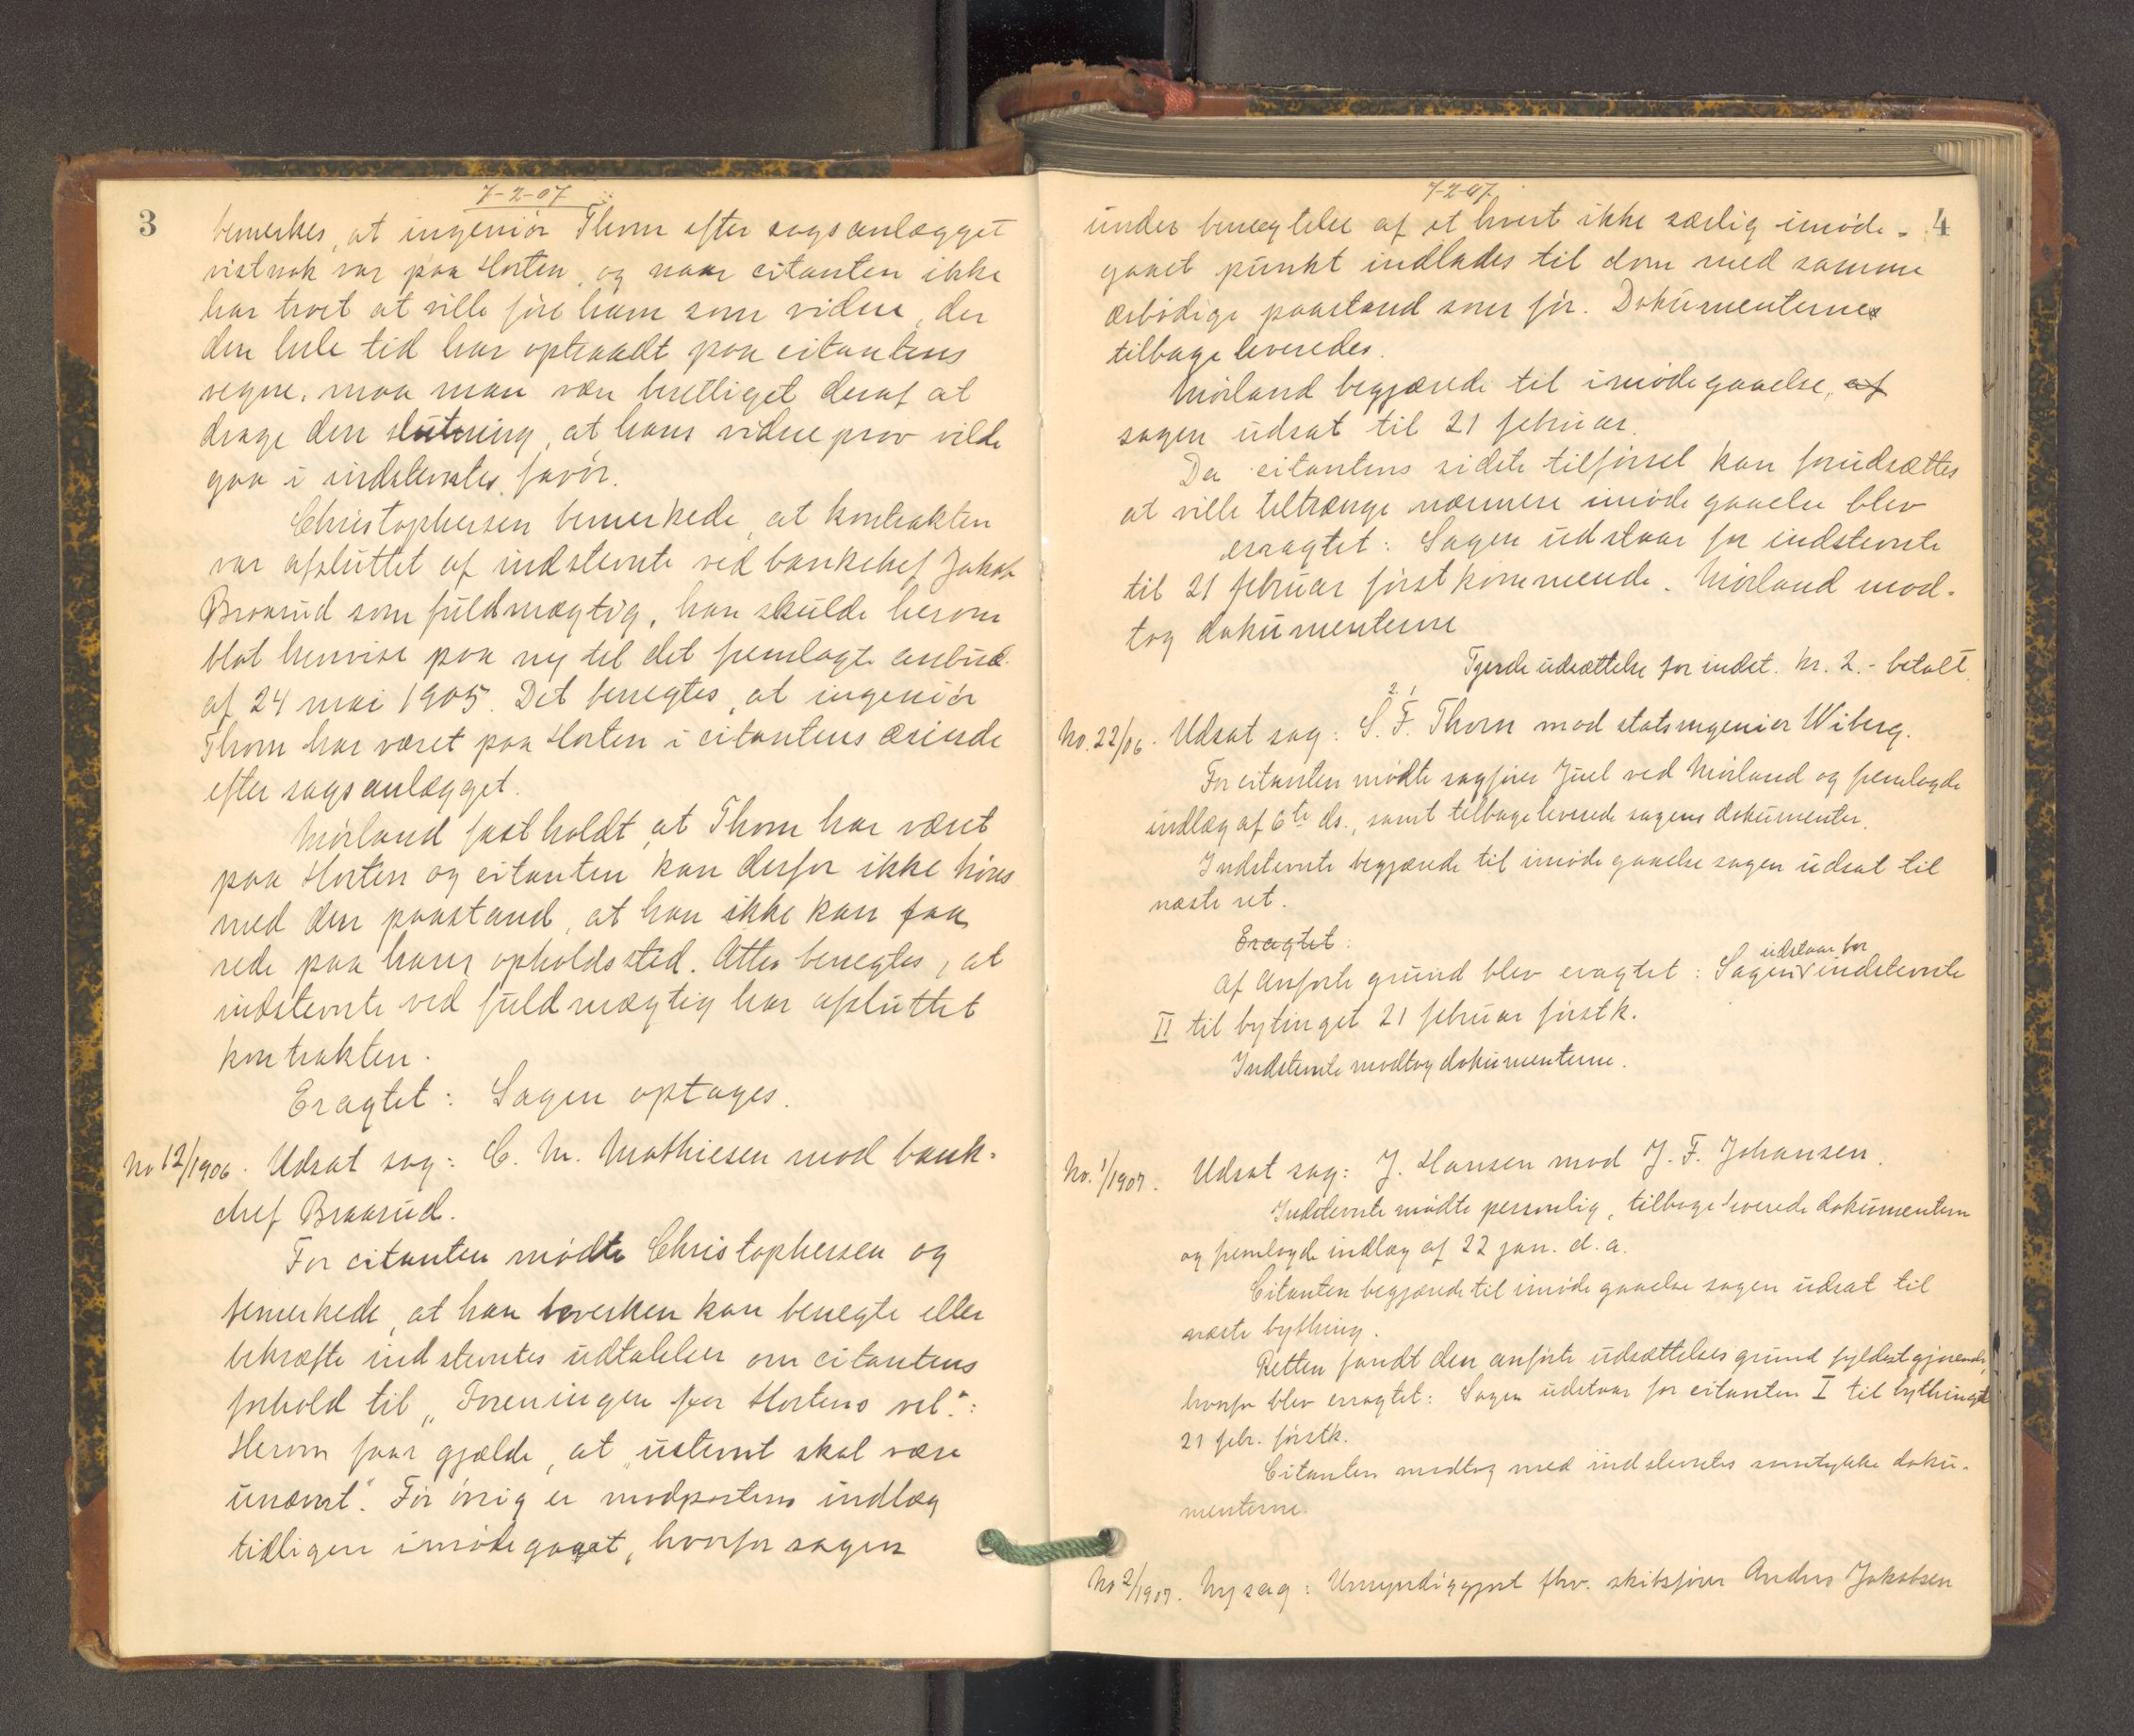 7-2-07
3
bemerkes, at ingeniør Thom efter sagsanlægget
vistnok var paa Horten, og naar citanten ikke
har troet at ville føre ham som vidne, der
den hele tid har optraadt paa citantens
vegne, maa man være berettiget deraf at
drage den slutning, at hans vidneprov vilde
gaa i indstevntes favør.
Christophersen bemerkede, at kontrakten
var afsluttet af indstevnte ved bankchef Jakob
Braarud som fuldmægtig, han skulde herom
blot henvise paa ny til det fremlagte anbud
af 24 mai 1905. Det benegtes, at ingeniør
Thom har været paa Horten i citantens ærinde
efter sagsanlægget.
Mørland fastholdt, at Thom har været
paa Horten og citanten kan derfor ikke høres
med den paastand, at han ikke kan faa
rede paa hans opholdssted. Atter benegtes, at
indstevnte ved fuldmægtig har afsluttet
kontrakten.
Eragtet: Sagen optages.
No 12/1906. Udsat sag: C. M. Mathiesen mod bank-
chef Braarud.
For citanten mødte Christophersen og
bemerkede, at han hverken kan benegte eller
bekræfte indstevntes udtalelser om citantens
forhold til „Foreningen for Hortens vel":
Herom faar gjælde, at „ustevnt skal være
unævnt". For øvrig er modpartens indlæg
tidligere imødegaaet, hvorfor sagen
7-2-07
4
under benegtelse af et hvert ikke særlig imøde-
gaaet punkt indlades til dom med samme
ærbødige paastand som før. Dokumenterne
tilbageleveredes.
Mørland begjærede til imødegaaelse, af
sagen udsat til 21 februar.
Da citantens sidste tilførsel kan forudsættes
at ville tiltrænge nærmere imødegaaelse blev
eragtet: Sagen udstaar for indstevnte
til 21 februar førstkommende. Mørland mod-
tog dokumenterne
Fjerde udsættelse for indst. kr. 2.- betalt.
2. 1
No. 22/06. Udsat sag: S. F. Thorn mod statsingeniør Wiberg.
For citanten mødte sagfører Juel ved Mørland og fremlagde
indlæg af 6te ds., samt tilbageleverede sagens dokumenter.
Indstevnte begjærede til imødegaaelse sagen udsat til
næste ret.
Eragtet:
udstaar for
Af anførte grund blev eragtet: Sagen indstevnte
II til bytinget 21 februar førstk.
Indstevnte modtog dokumenterne.
No. 1/1907. Udsat sag: J. Hansen mod J. F. Johansen.
Indstevnte mødte personlig, tilbageleverede dokumenterne
og fremlagde indlæg af 22 jan. d. a.
Citanten begjærede til imødegaaelse sagen udsat til
næste bything.
Retten fandt den anførte udsættelsesgrund fyldestgjørende,
hvorfor blev eragtet: Sagen udstaar for citanten I til bythinget
21 febr. førstk.
Citanten modtog med indstevntes samtykke doku-
menterne.
No 2/1907. Ny sag: Umyndiggjort fhv. skibsfører Anders Jakobsen